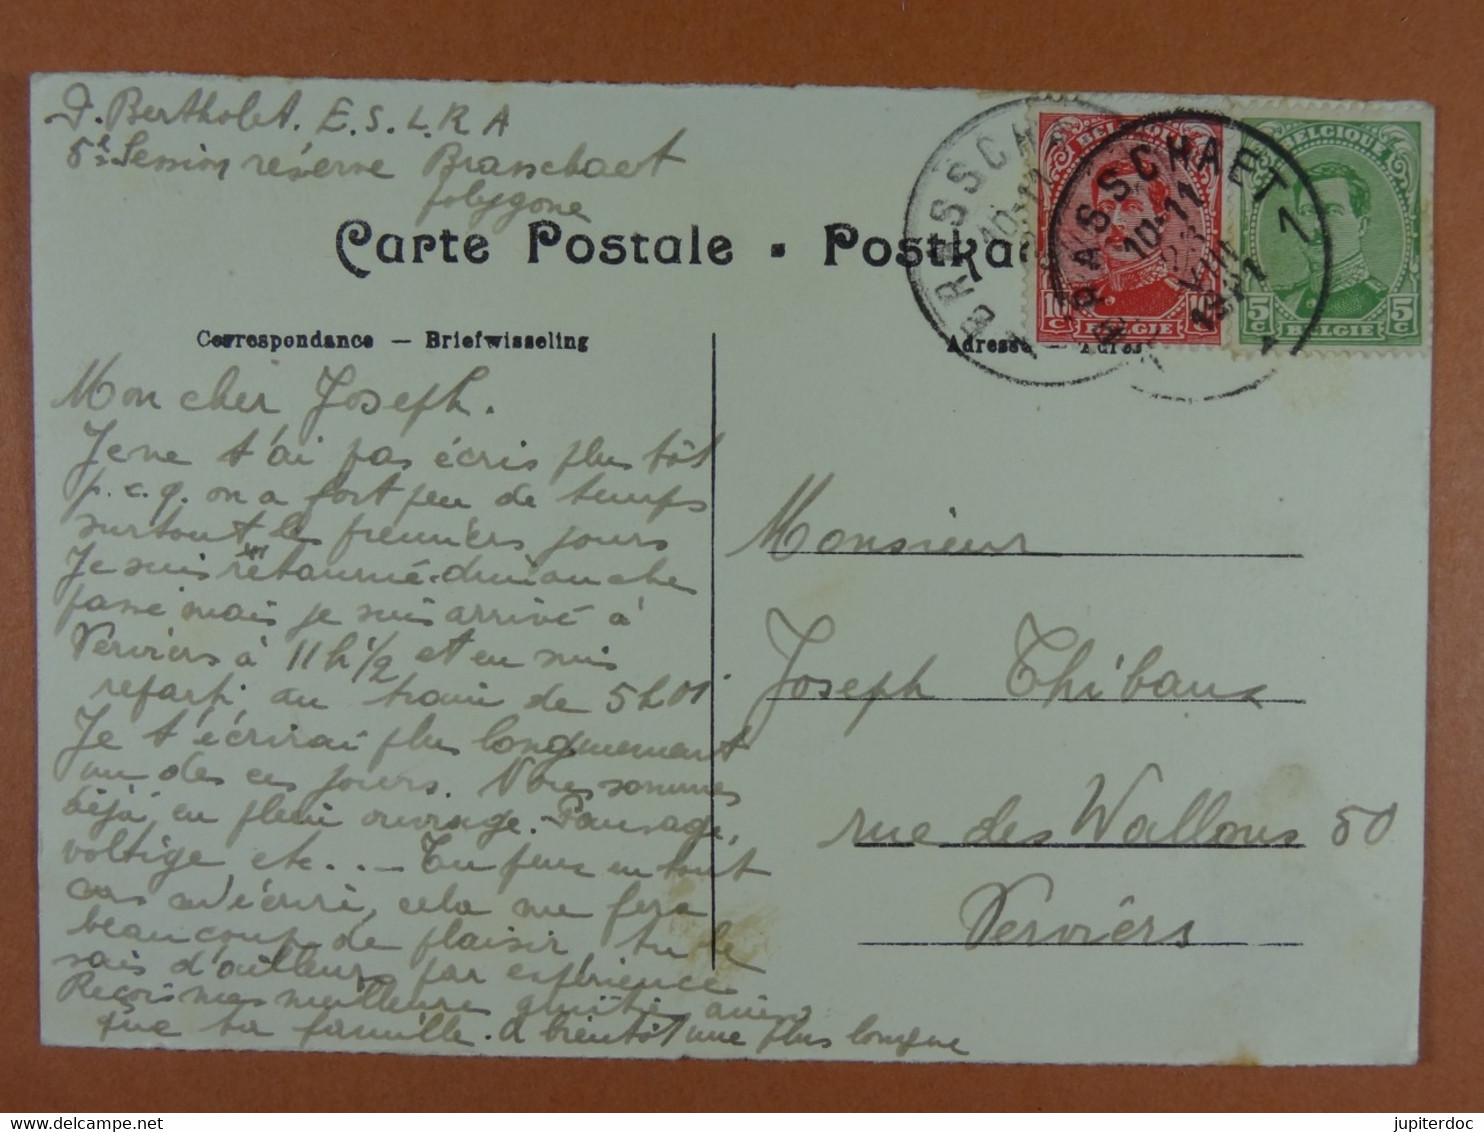 Bertholet. E. S. L. R A
5e Session réserve Brasschaet
polygone
Carte Postale - Postka
Correspondance — Briefwisseling
Adresse — Adres
BRASSCHAET 1
10-11
VIII
1921
BELGIQUE
10c 10c
BELGIE
BELGIQUE
5c 5c
BELGIE
Mon cher Joseph.
Je ne t'ai pas écris plus tôt
p.c.q. on a fort peu de temps
surtout les premiers jours
Je suis retourné dimanche
passé mais je suis arrivé à
Verviers à 11h 1/2 et en suis
reparti au train de 5h01
Je t'écrirai plus longuement
un des ces jours. Nous sommes
déjà en plein ouvrage. Pansage,
voltige etc... — Tu peux en tout
cas m'écrire, cela me fera
beaucoup de plaisir, tu le
sais d'ailleurs par expérience
Reçois mes meilleures amitiés ainsi
que ta famille. A bientôt une plus longue
Monsieur
Joseph Thibaux
rue des Wallons 50
Verviers
delcampe.net
jupiterdoc